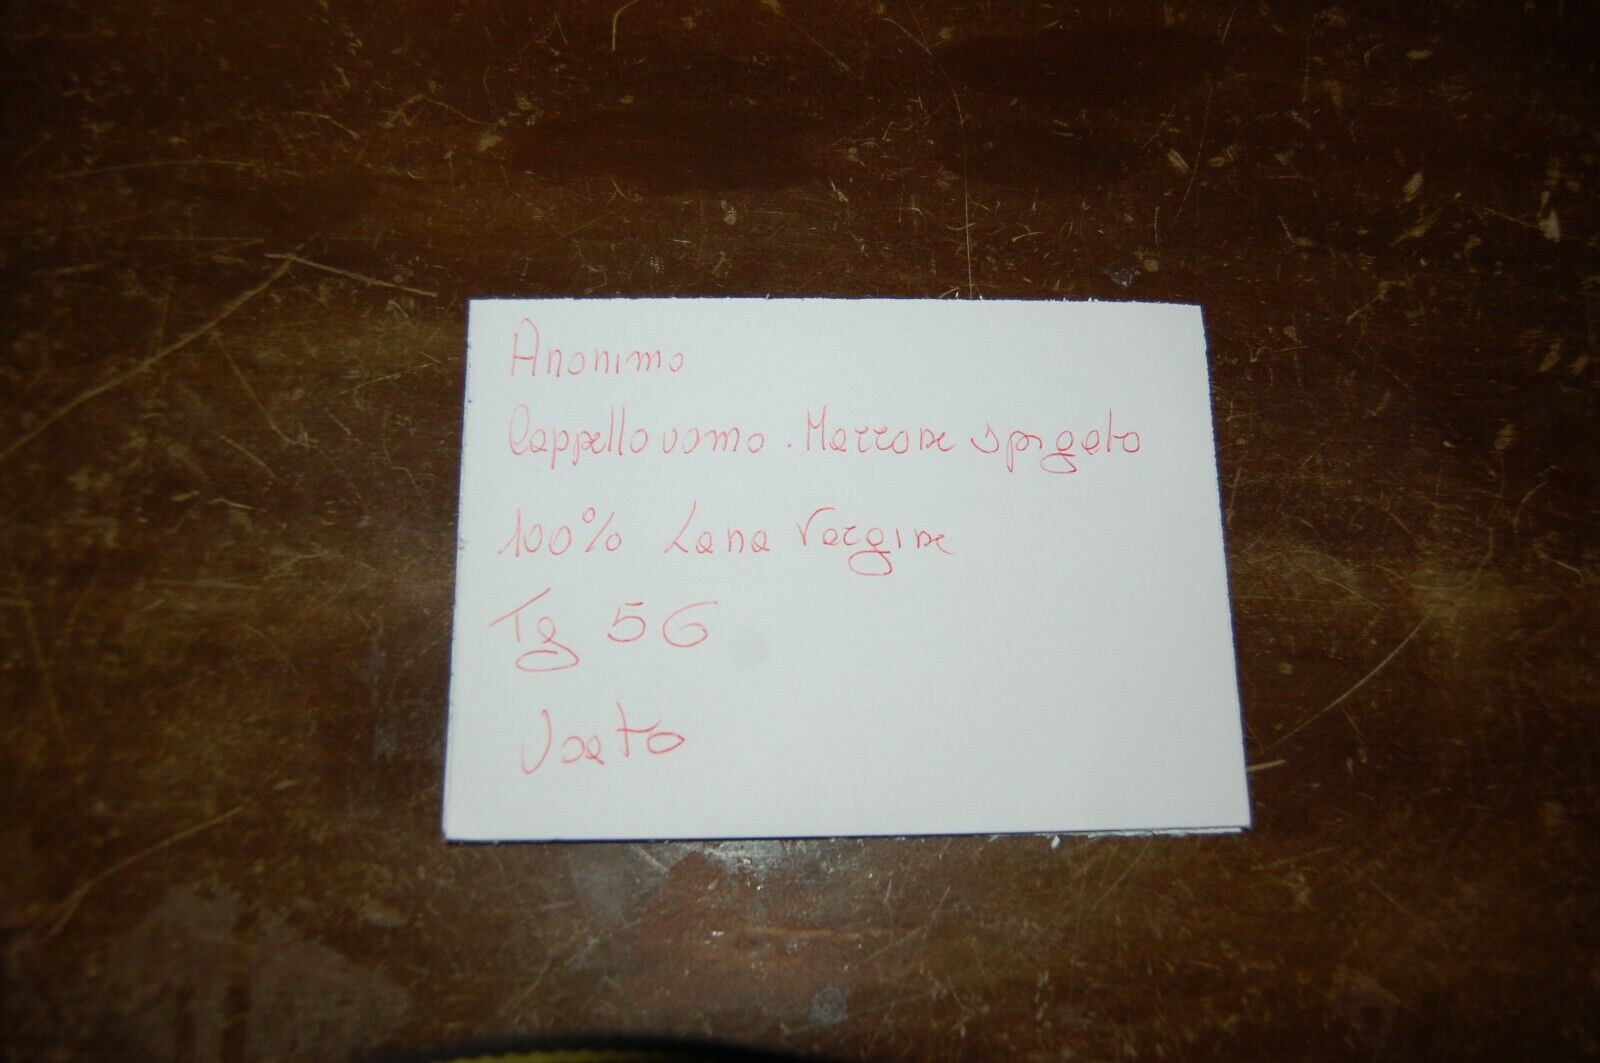 Anonimo
Cappello uomo. Marrone spigato
100% Lana Vergine
Tg 56
Usato